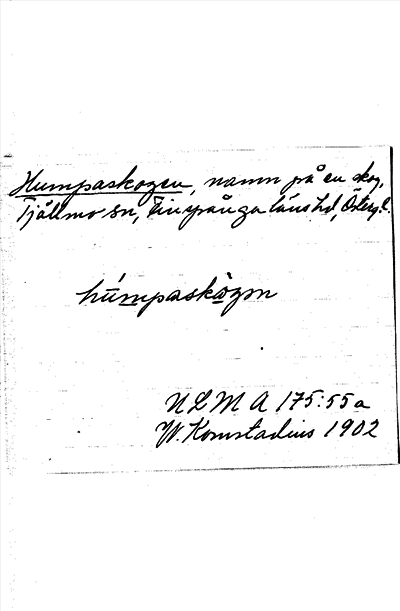 Humpaskogen, namn på en skog,
Tjällmo sn, Finspånga läns hd, Östergl.
húmpaskògɷn
ULMA 175:55a
W. Komstadius 1902